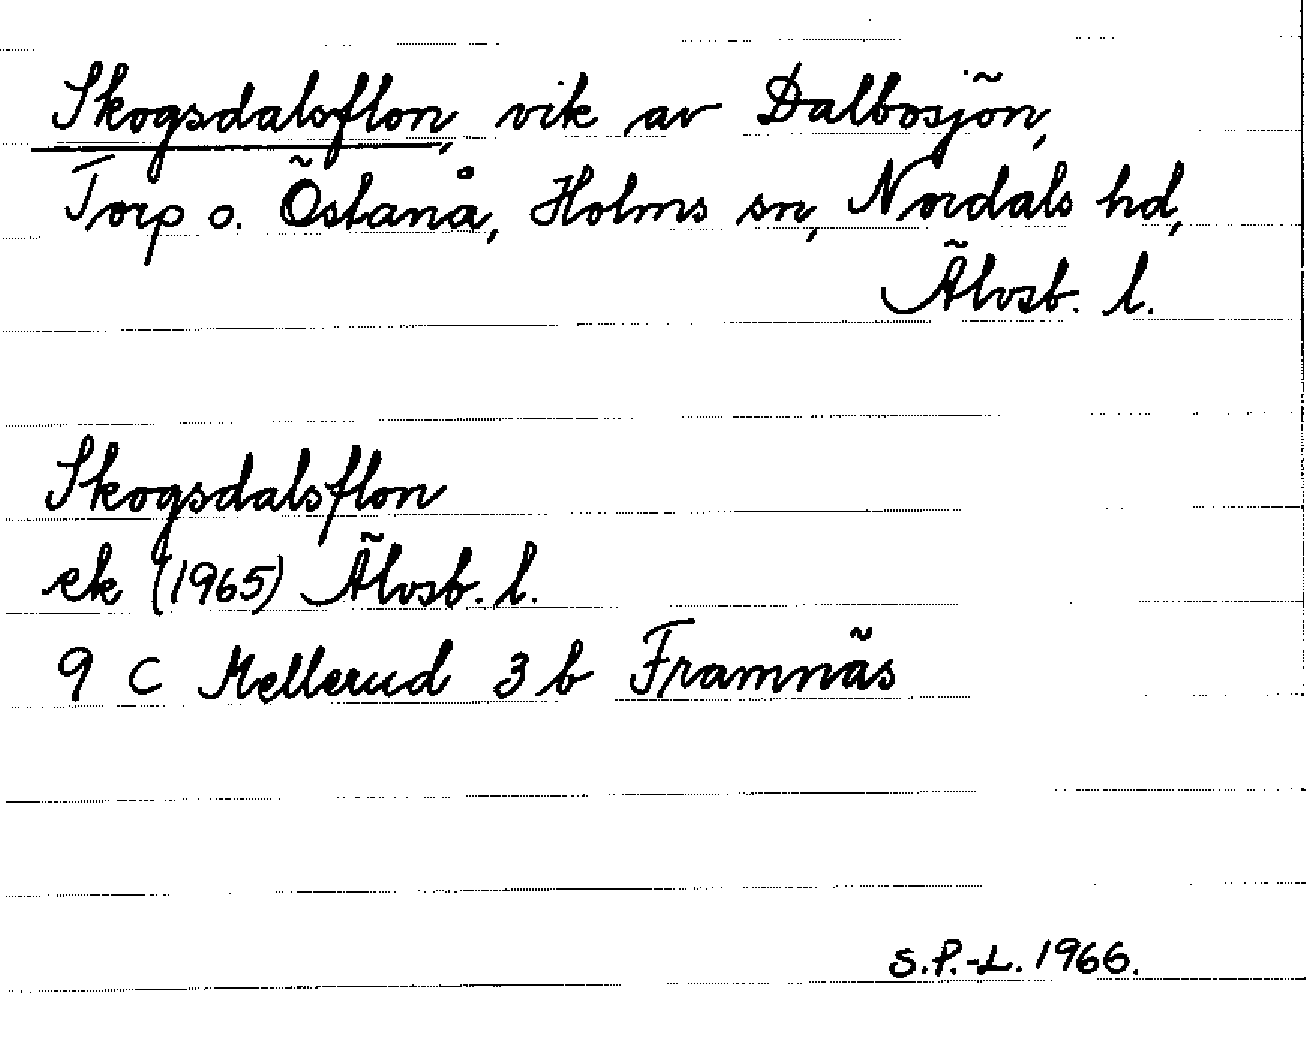 Skogsdalsflon, vik av Dalbosjön,
Torp o. Östanå, Holms sn, Nordals hd,
Älvsb. l.
Skogsdalsflon
ek (1965) Älvsb. l.
9 C Mellerud 3 b Framnäs
S.P.-L. 1966.